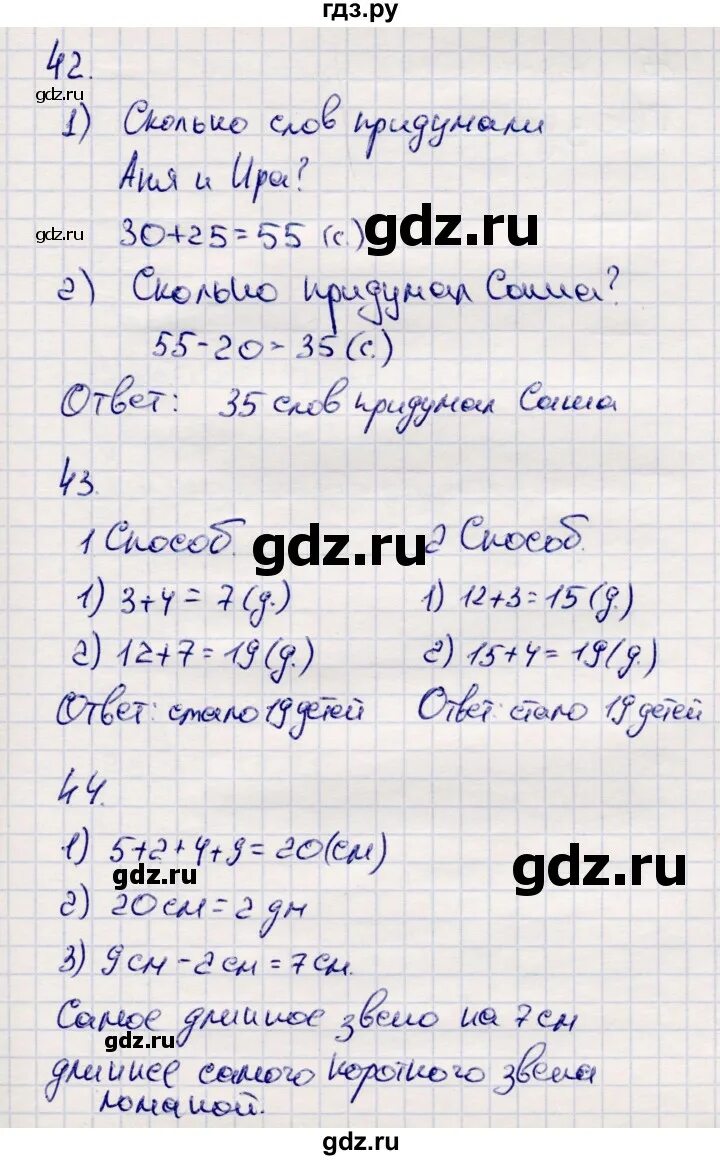 гдз.ру
42.
gdz.ru
1) Сколько слов придумали
Аня и Ира?
gdz.ru
30+25=55 (с.)
gdz.ru
2) Сколько придумал Саша?
55-20=35(с.)
Ответ: 35 слов придумал Саша
43.
1 Способ.
gdz.ru
2 Способ.
1) 3+4=7(д.)
1) 12+3=15(д.)
2) 12+7=19(д.)
2) 15+4=19(д.)
Ответ: стало 19 детей
Ответ: стало 19 детей
44.
1) 5+2+4+9=20(см)
gdz.ru
gdz.ru
2) 20см=2дм
3) 9см-2см=7см.
Самое длинное звено на 7см
gdz.ru
длиннее самого короткого звена
ломаной.
gdz.ru